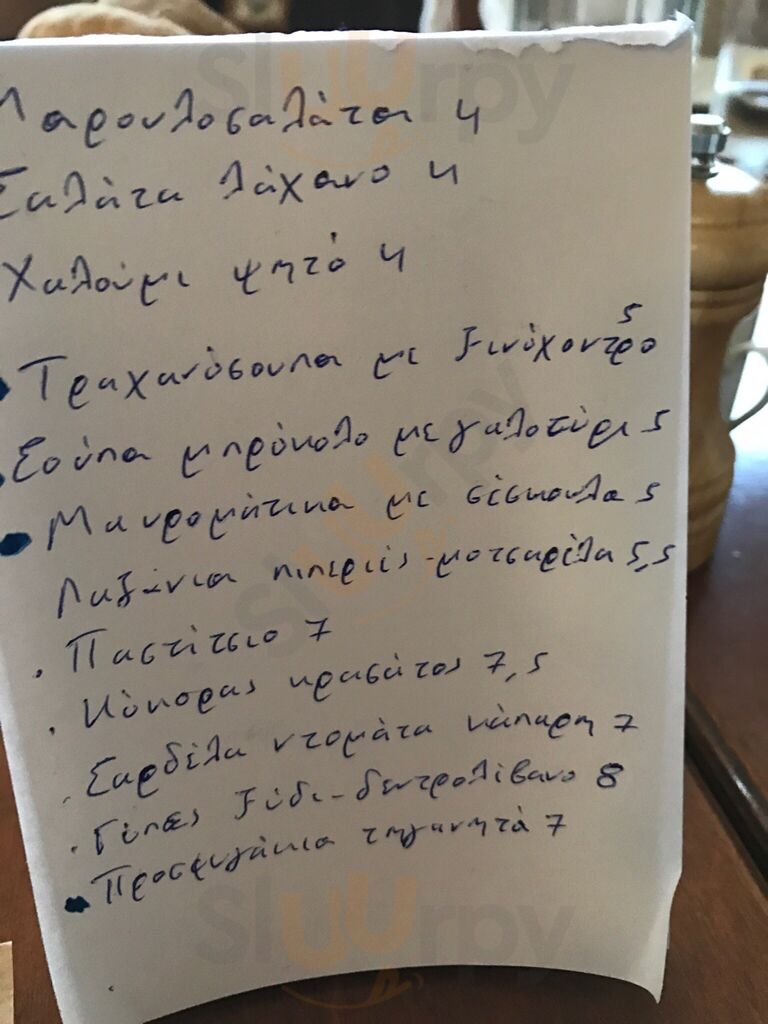 Μαρουλοσαλάτα 4
Σαλάτα λάχανο 4
Χαλούμι ψητό 4
Τραχανόσουπα με ξινόχοντρο 5
Σούπα μπρόκολο με γαλοτύρι 5
Μαυρομάτικα με σέσκουλα 5
Λαζάνια πιπεριές-μοτσαρέλα 5,5
. Παστίτσιο 7
. Κόκορας κρασάτος 7,5
. Σαρδέλα ντομάτα κάπαρη 7
. Γόπες ξύδι-δεντρολίβανο 8
Προσφυγάκια τηγανητά 7
Sluurpy
Sluurpy
Sluurpy